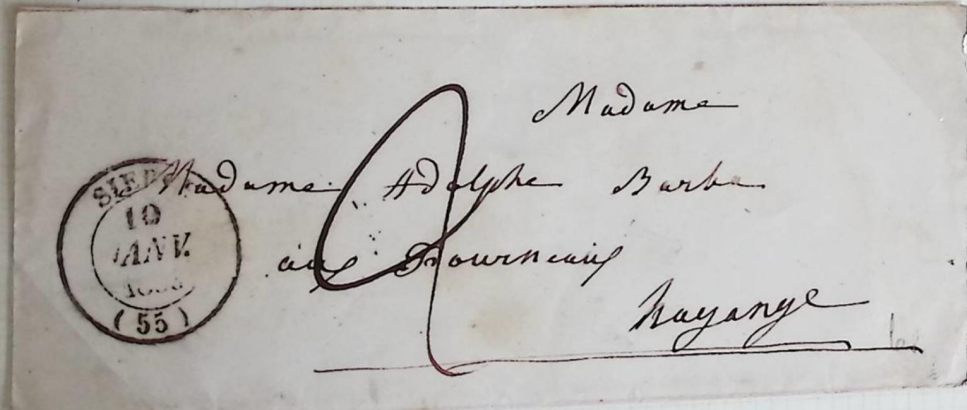 Madame
Madame Adolphe Barbe
aux Fourneaux
Hayange
2
10
JANV.
(55)